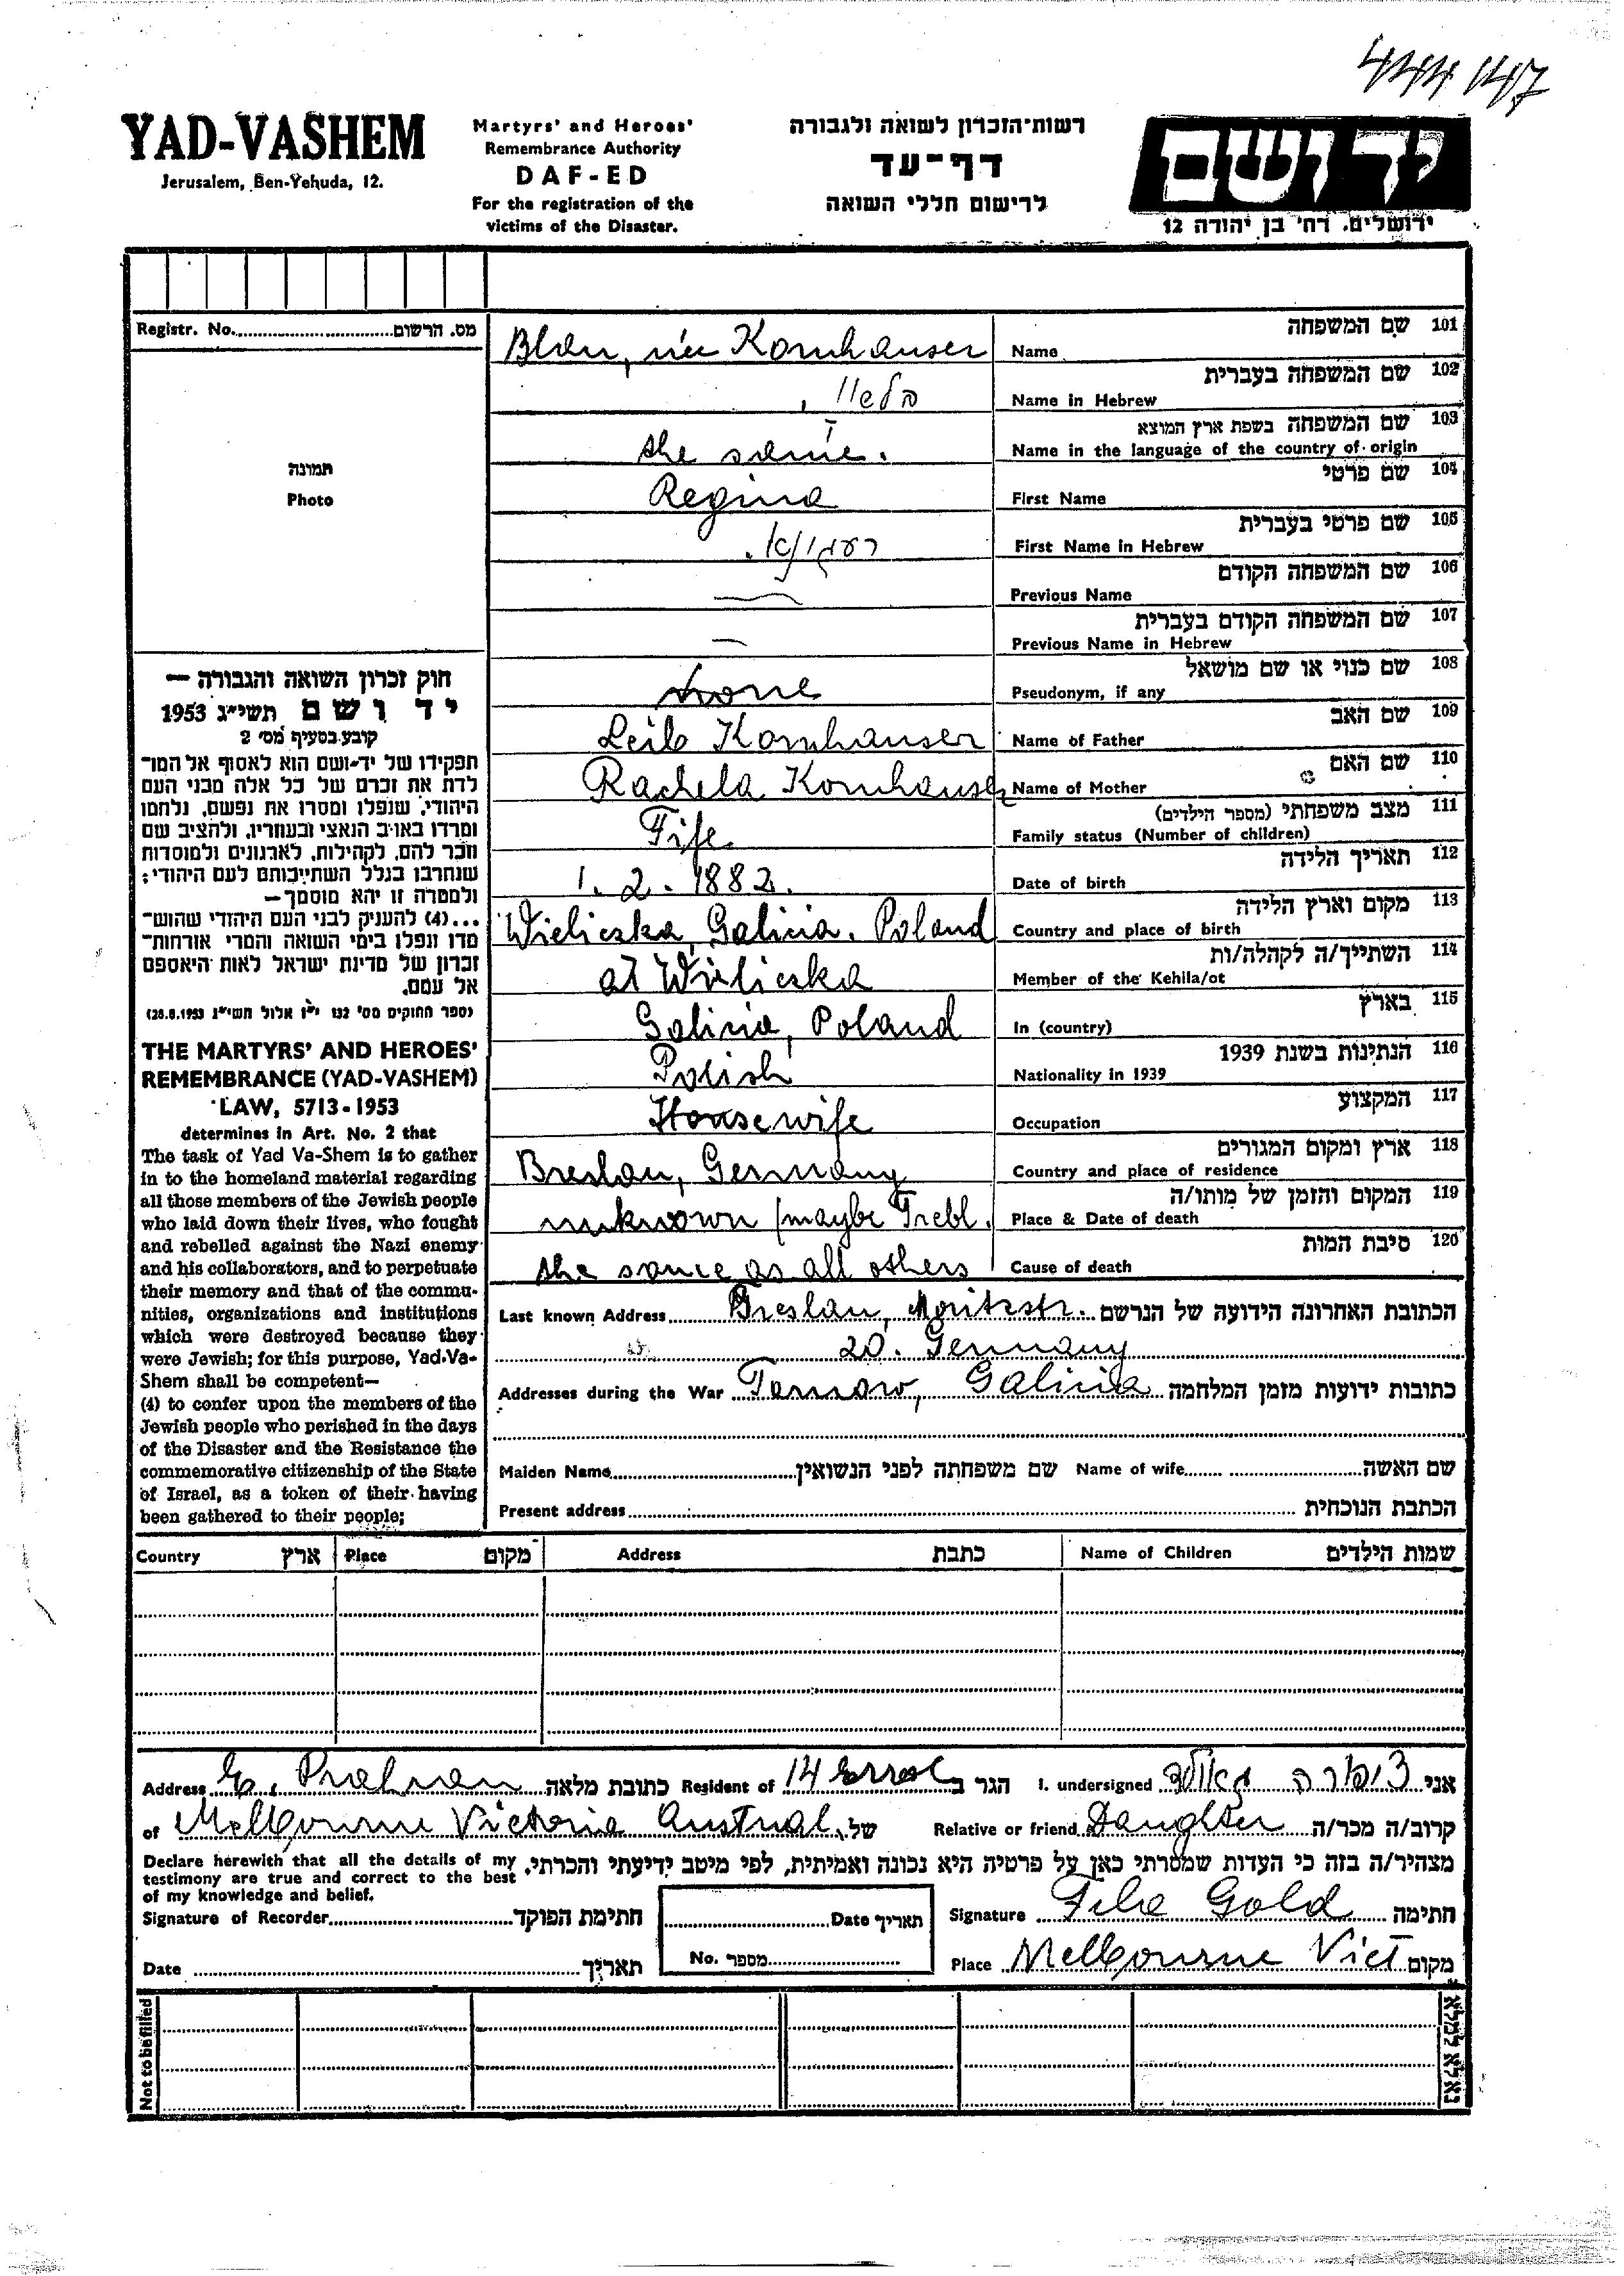 444147
YAD-VASHEM
Jerusalem, Ben-Yehuda, 12.
Martyrs' and Heroes'
Remembrance Authority
DAF-ED
For the registration of the
victims of the Disaster.
רשות-הזכרון לשואה ולגבורה
דף-עד
לרישום חללי השואה
יד ושם
ירושלים, רח' בן יהודה 12
Registr. No. מס. הרשום
תמונה
Photo
101 שם המשפחה
Name Blau, née Kornhauser
102 שם המשפחה בעברית
Name in Hebrew
103 שם המשפחה בשפת ארץ המוצא
Name in the language of the country of origin the same.
104 שם פרטי
First Name Regina
105 שם פרטי בעברית
First Name in Hebrew
106 שם המשפחה הקודם
Previous Name —
107 שם המשפחה הקודם בעברית
Previous Name in Hebrew —
108 שם כנוי או שם מושאל
Pseudonym, if any none
109 שם האב
Name of Father Leib Kornhauser
110 שם האם
Name of Mother Rachela Kornhauser
111 מצב משפחתי (מספר הילדים)
Family status (Number of children)
112 תאריך הלידה
Date of birth 1. 2. 1882.
113 מקום וארץ הלידה
Country and place of birth Wieliczka, Galicia. Poland
114 השתייך/ה לקהלה/ות
Member of the Kehila/ot at Wieliczka
115 בארץ
In (country) Galicia, Poland
116 הנתינות בשנת 1939
Nationality in 1939 Polish
117 המקצוע
Occupation Housewife
118 ארץ ומקום המגורים
Country and place of residence Breslau, Germany
119 המקום והזמן של מותו/ה
Place & Date of death unknown (maybe Trebl.
120 סיבת המות
Cause of death the same as all others
Last known Address Breslau, Moritzstr. הכתובת האחרונה הידועה של הנרשם
20. Germany
Addresses during the War Tarnow, Galicia כתובות ידועות מזמן המלחמה
Maiden Name שם משפחתה לפני הנשואין Name of wife שם האשה
Present address הכתבת הנוכחית
חוק זכרון השואה והגבורה —
יד ושם תשי"ג 1953
קובע בסעיף מס' 2
תפקידו של יד-ושם הוא לאסוף אל המו־
לדת את זכרם של כל אלה מבני העם
היהודי, שנפלו ומסרו את נפשם, נלחמו
ומרדו באויב הנאצי ובעוזריו, ולהציב שם
וזכר להם, לקהילות, לארגונים ולמוסדות
שנחרבו בגלל השתייכותם לעם היהודי;
ולמטרה זו יהא מוסמך—
...(4) להעניק לבני העם היהודי שהוש־
מדו ונפלו בימי השואה והמרי אזרחות־
זכרון של מדינת ישראל לאות היאספם
אל עמם.
(ספר החוקים מס' 132 י"ז אלול תשי"ג 28.8.1953)
THE MARTYRS' AND HEROES'
REMEMBRANCE (YAD-VASHEM)
LAW, 5713-1953
determines in Art. No. 2 that
The task of Yad Va-Shem is to gather
in to the homeland material regarding
all those members of the Jewish people
who laid down their lives, who fought
and rebelled against the Nazi enemy
and his collaborators, and to perpetuate
their memory and that of the commu-
nities, organizations and institutions
which were destroyed because they
were Jewish; for this purpose, Yad-Va-
Shem shall be competent—
(4) to confer upon the members of the
Jewish people who perished in the days
of the Disaster and the Resistance the
commemorative citizenship of the State
of Israel, as a token of their having
been gathered to their people;
Country ארץ Place מקום Address כתבת Name of Children שמות הילדים
Address Prahran כתובת מלאה Resident of 14 Errol הגר ב I. undersigned צפורה גאולד אני
of Melbourne Victoria Austral. של Relative or friend Daughter קרוב/ה מכר/ה
Declare herewith that all the details of my
testimony are true and correct to the best
of my knowledge and belief.
מצהיר/ה בזה כי העדות שמסרתי כאן על פרטיה היא נכונה ואמיתית, לפי מיטב ידיעתי והכרתי.
Signature of Recorder חתימת הפוקד Date תאריך Signature Gold חתימה
Date תאריך No. מספר Place Melbourne Vict מקום
Not to be filled נא לא למלא